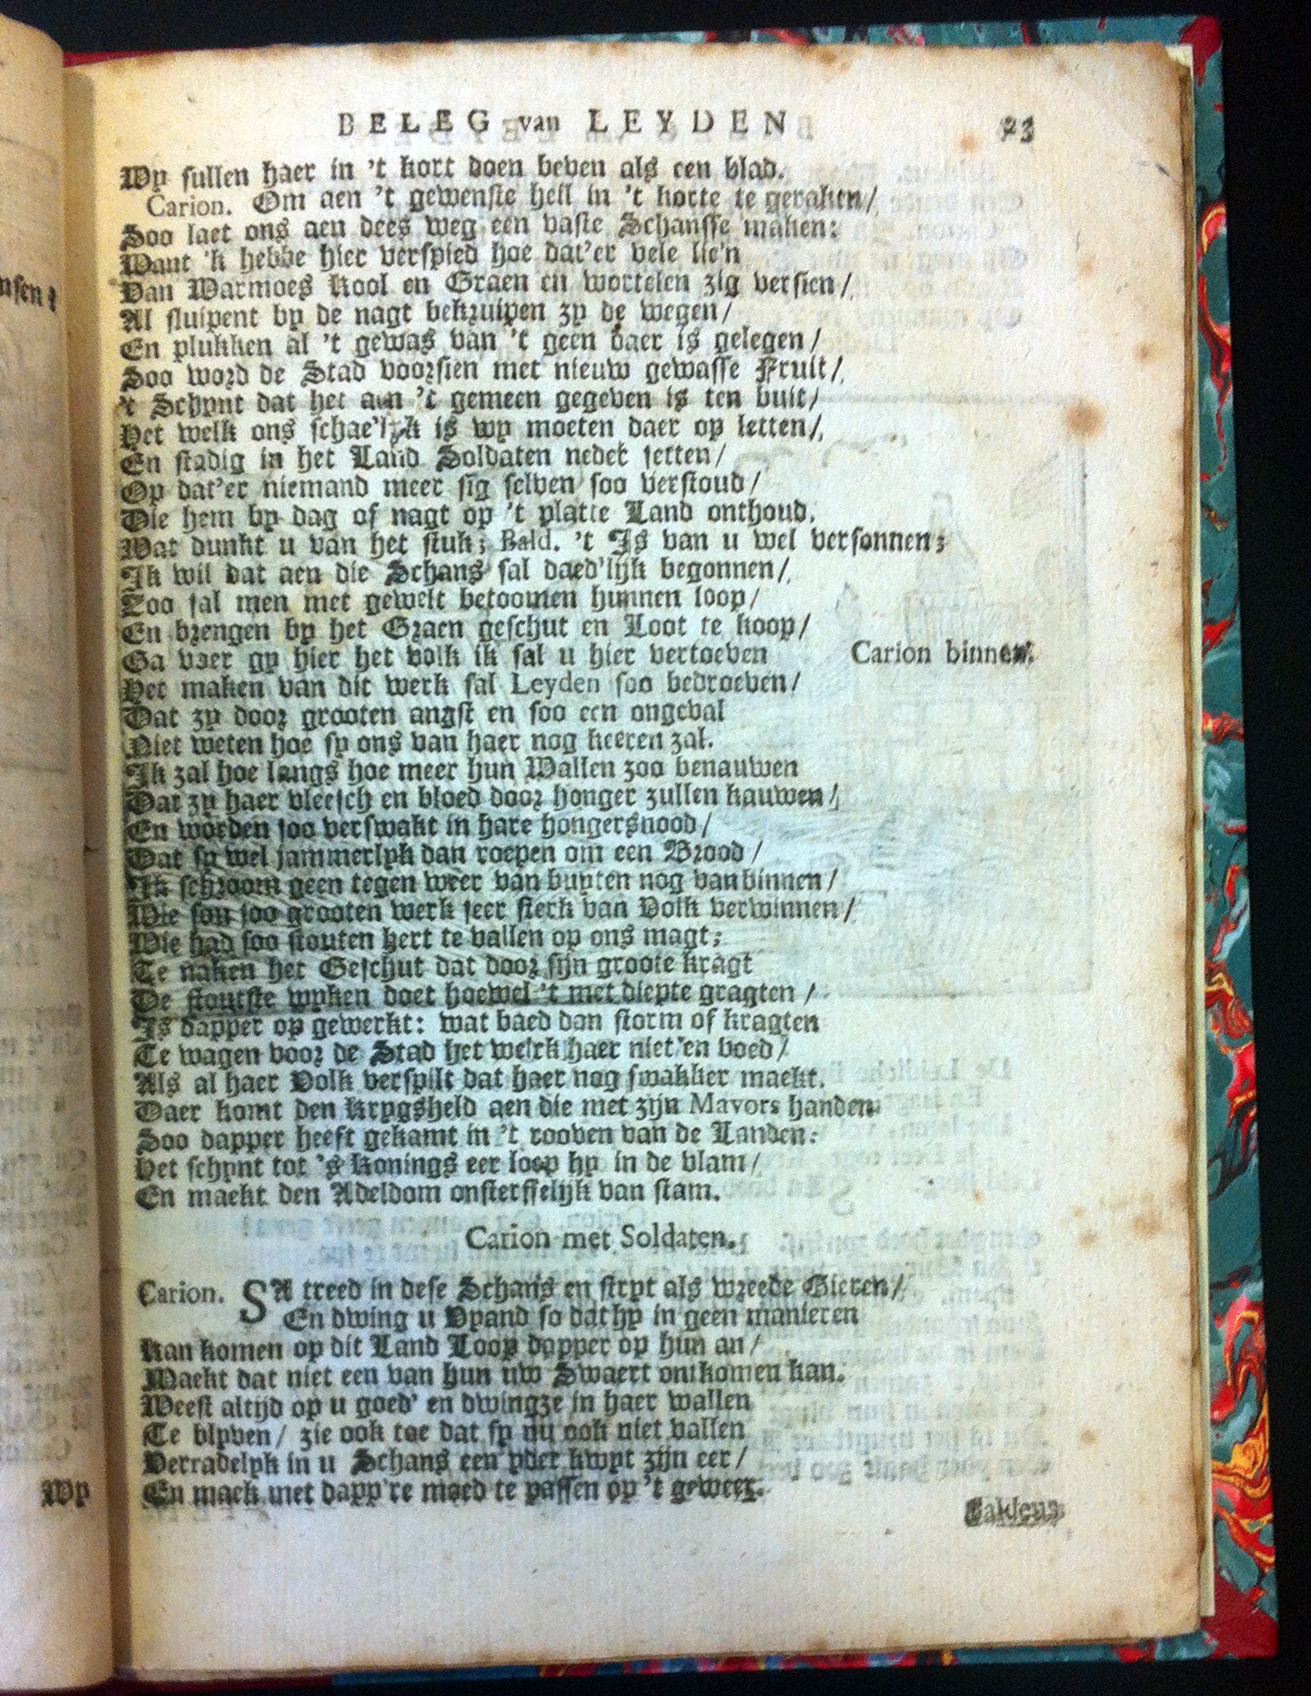 BELEG van LEYDEN 23
Wy sullen haer in 't kort doen beven als een blad.
Carion. Om aen 't gewenste heil in 't korte te geraken/
Soo laet ons aen dees weg een vaste Schansse maken:
Want 'k hebbe hier verspied hoe dat'er vele lie'n
Van Warmoes Kool en Graen en wortelen zig versien/
Al sluipent by de nagt bekruipen zy de wegen/
En plukken al 't gewas van 't geen daer is gelegen/
Soo word de Stad voorsien met nieuw gewasse Fruit/
't Schynt dat het aan 't gemeen gegeven is ten buit/
Het welk ons schae'lyk is wy moeten daer op letten/
En stadig in het Land Soldaten neder setten/
Op dat'er niemand meer sig selven soo verstoud/
Die hem by dag of nagt op 't platte Land onthoud.
Wat dunkt u van het stuk; Bald. 't Is van u wel versonnen;
Ik wil dat aen die Schans sal daed'lijk begonnen/
Zoo sal men met gewelt betoomen hunnen loop/
En brengen by het Graen geschut en Loot te koop/
Ga voer gy hier het volk ik sal u hier vertoeven Carion binnen.
Het maken van dit werk sal Leyden soo bedroeven/
Dat zy door grooten angst en soo een ongeval
Niet weten hoe sy ons van haer nog keeren zal.
Ik zal hoe langs hoe meer hun Wallen zoo benauwen
Dat zy haer vleesch en bloed door honger zullen kauwen/
En worden soo verswakt in hare hongersnood/
Dat sy wel jammerlyk dan roepen om een Brood/
Ik schroom geen tegen weer van buyten nog van binnen/
Wie sou soo grooten werk seer sterk van Volk verwinnen/
Wie had soo stouten hert te vallen op ons magt;
Te naken het Geschut dat door sijn groote kragt
De stoutste wyken doet hoewel 't met diepte gragten/
Is dapper op gewerkt: wat baed dan storm of kragten
Te wagen voor de Stad het welk haer niet en voed/
Als al haer Volk verspilt dat haer nog swakker maekt.
Daer komt den Krygsheld aen die met zijn Mavors handen
Soo dapper heeft gekamt in 't rooven van de Landen:
Het schynt tot 's Konings eer loop hy in de vlam/
En maekt den Adeldom onsterffelijk van stam.
Carion met Soldaten.
Carion. SA treed in dese Schans en stryt als wreede Gieren/
En dwing u Vyand so dat hy in geen manieren
Kan komen op dit Land Loop dapper op hun an/
Maekt dat niet een van hun uw Swaert ontkomen kan.
Weest altijd op u goed' en dwingze in haer wallen
Te blyven/ zie ook toe dat sy nu ook niet vallen
Verradelyk in u Schans een yder kwyt zijn eer/
En maek met dapp're moed te passen op 't geweer.
Baldeus
nsen;
Wy